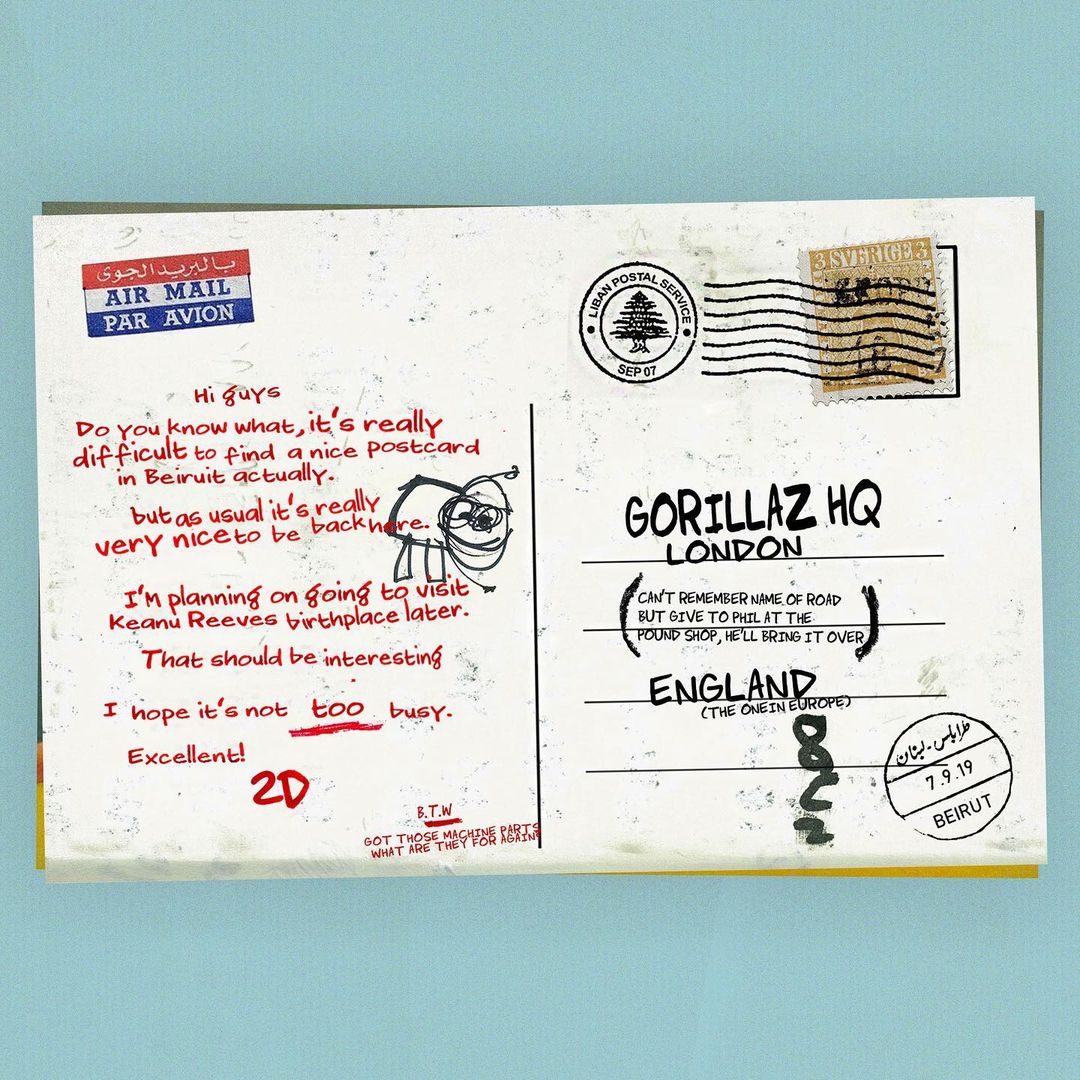 بالبريد الجوى
AIR MAIL
PAR AVION
LIBAN POSTAL SERVICE
SEP 07
3 SVERIGE 3
Hi guys
Do you know what, it's really
difficult to find a nice postcard
in Beiruit actually.
but as usual it's really
very nice to be back here.
I'm planning on going to visit
Keanu Reeves birthplace later.
That should be interesting
I hope it's not too busy.
Excellent!
2D
B.T.W
GOT THOSE MACHINE PARTS
WHAT ARE THEY FOR AGAIN?
GORILLAZ HQ
LONDON
(CAN'T REMEMBER NAME OF ROAD
BUT GIVE TO PHIL AT THE
POUND SHOP, HE'LL BRING IT OVER)
ENGLAND
(THE ONE IN EUROPE)
طرابلس - لبنان
7.9.19
BEIRUT